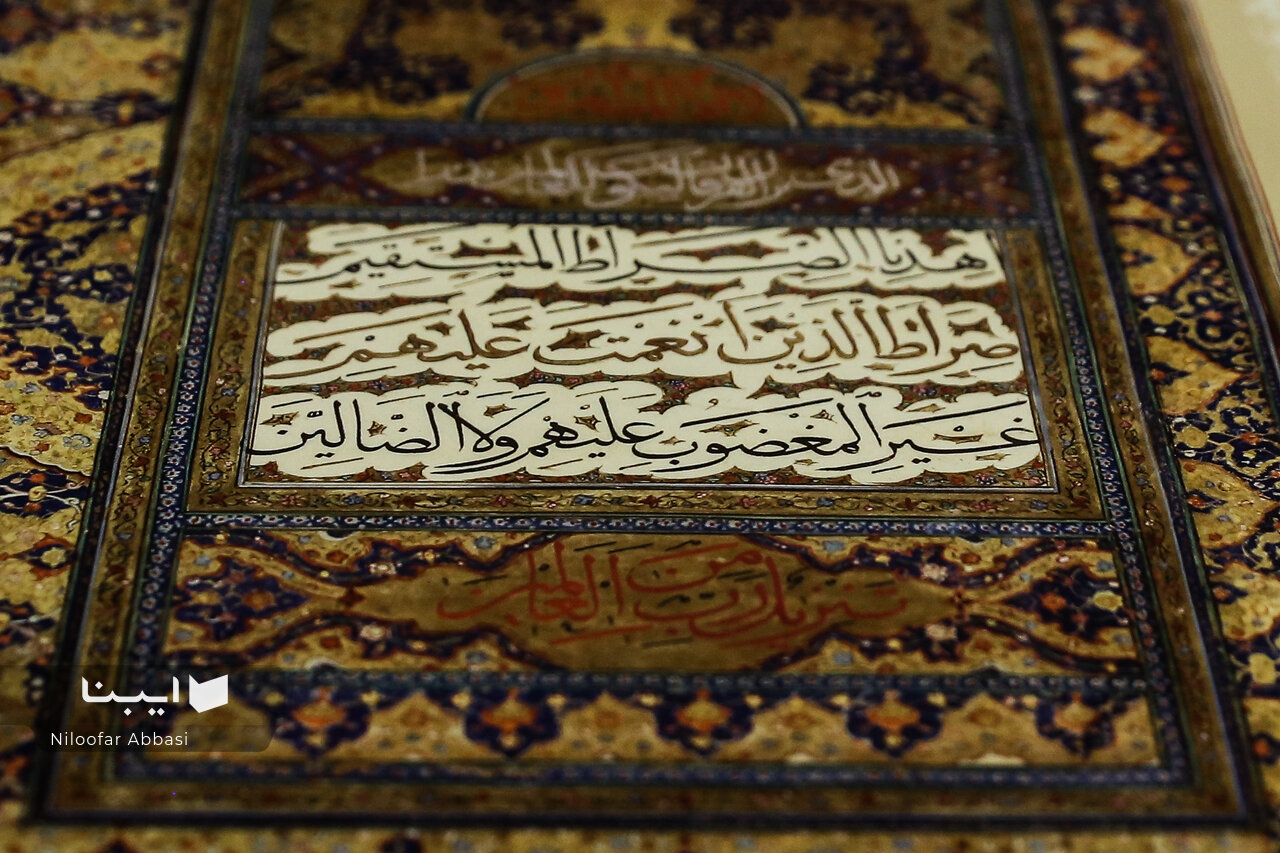 اهدنا الصراط المستقیم
صراط الذین انعمت علیهم
غیر المغضوب علیهم ولا الضالین
تنزیل من رب العالمین
ایبنا
Niloofar Abbasi